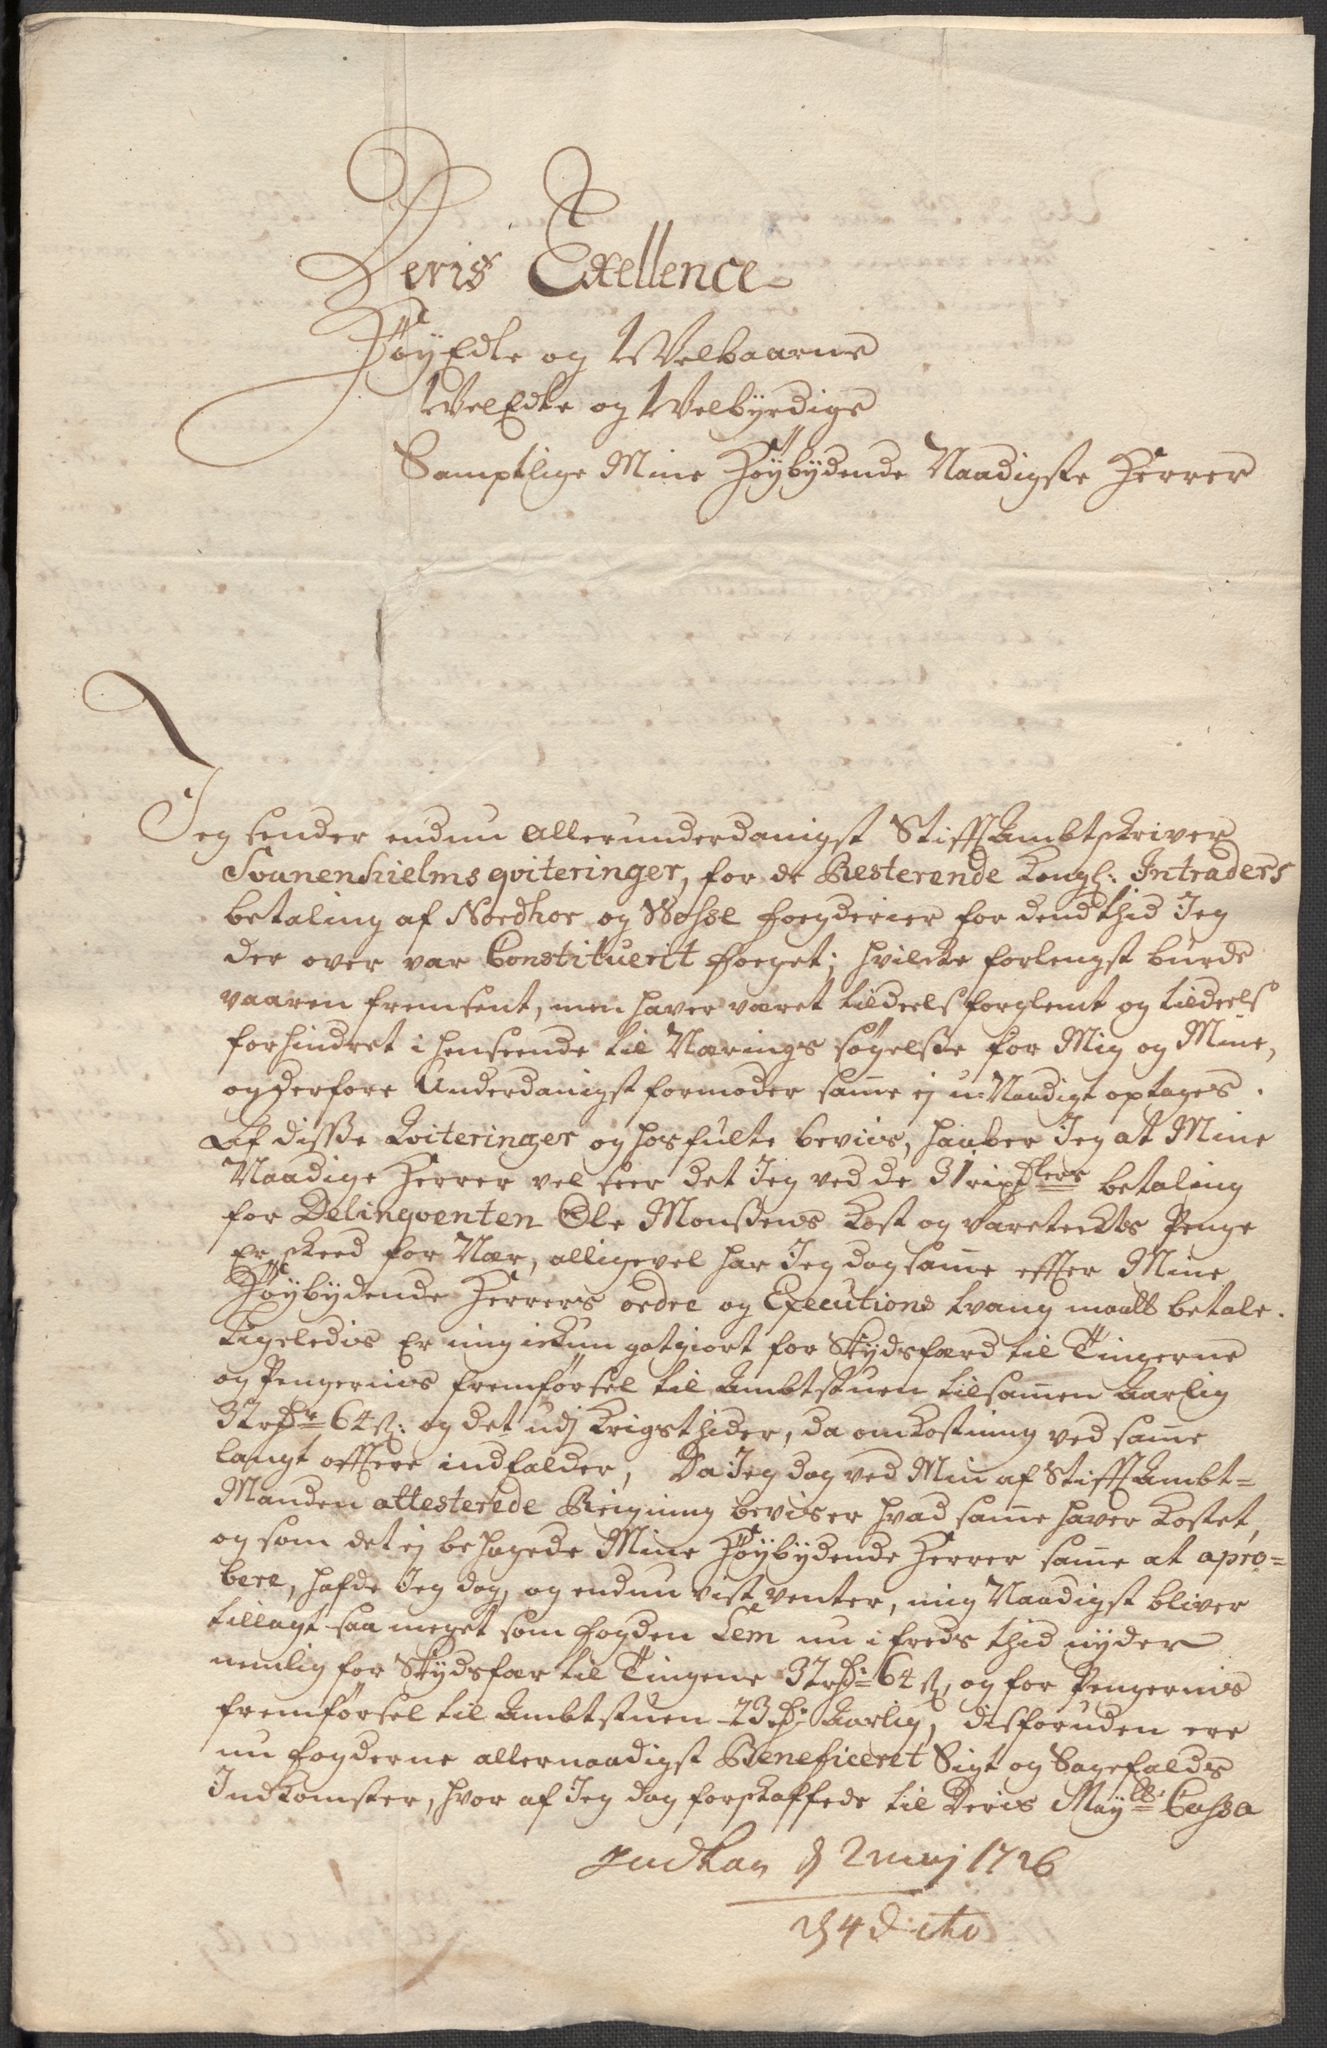 Deris Exellence
HøyEdle og Welbaarne
WelEdle og Welbyrdige
Samptlige Mine Høÿbÿdende Naadigste Herrer
Jeg sender endnu allerunderdanigst StifftAmbtskriver
Svanenhielms qviteringer, for de Resterende Kongl: Intraders
betaling af Nordhor og Wosse fogderier for dend thid Jeg
der over var Constituerit foeget; hvilcke forlengst burde
vaaren fremsent, men haver været tildeels forglemt og tildeels
forhindret i henseende til Nærings søgelsse for Mig og Mine,
og derfore Underdanigst formoder same ej u-Naadigt optages.
Af disse Qviteringer og hosfulte beviis, haaber Jeg at Mine
Naadige Herrer vel seer det Jeg ved de 31 rixdlers betaling
for Delinqventen Ole Monssens Kost og Varetecktes Penge
Er skeed for Nær, alligevel har Jeg dog same effter Mine
Høÿbÿdende Herrers ordre og Executions tvang maatt betale.
Ligeledis Er mig ickun gotgiort for Skydsferd til Tingerne
og Pengernis fremførsel til Ambtstuen tilsamen Aarlig
32 rdr 64 s: og det udj Krigs thider, da omkostning ved same
langt offtere indfalder, Da Jeg dog ved Min af StifftAmbt=
Manden attesterede Reigning beviser hvad same haver kostet,
og som det ej behagede Mine Høÿbÿdende Herrer same at apro=
bere, hafde Jeg dog, og endnu vist venter, mig Naadigst bliver
tillagt saa meget som fogden Lem nu i freds thid nyder
nemlig for Skydsfær til Tingene 32 rdr 64 s, og for Pengernis
fremførsel til Ambtstuen 23 rdr Aarlig, disforuden ere
nu fogderne allernaadigst Beneficeret Sigt og Sagefalds
Indkomster, hvor af Jeg dog forskaffede til Deris Maÿtts Cassa
d 2 maj 1726
d 4 dito